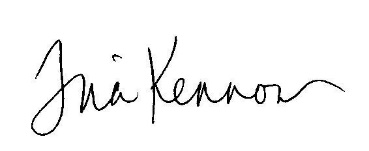 Tria Kennon